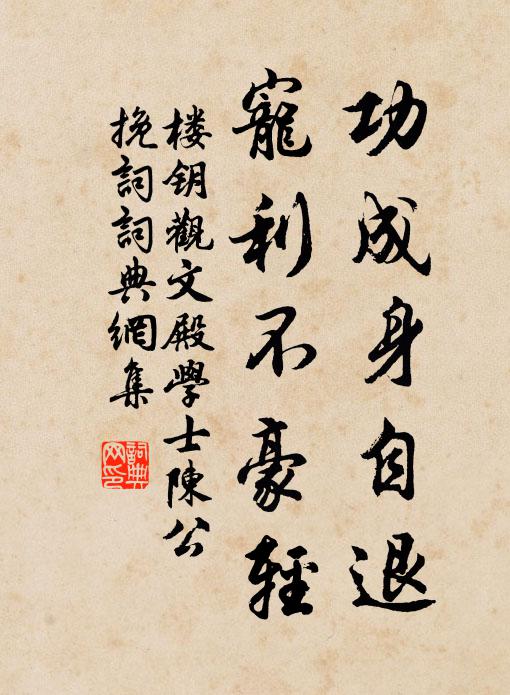 功成身自退
寵利不豪輕
楼钥觀文殿學士陳公
挽詞詞典網集
詞典
网印